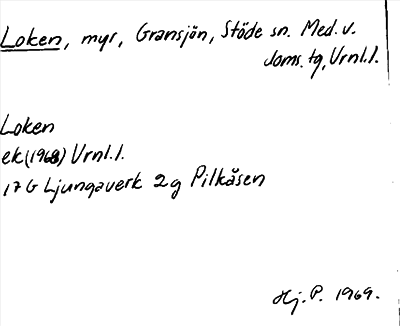 Loken, myr, Gransjön, Stöde sn. Med. v.
Joms. tg, Vrnl.l.
Loken
ek (1968) Vrnl.l.
17G Ljungaverk 2g Pilkåsen
Hj. P. 1969.